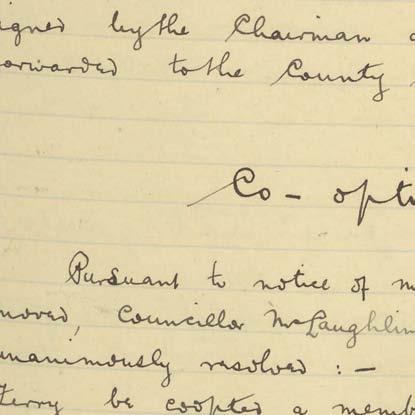 igned by the Chairman
orwarded to the County
Co - opti
Pursuant to notice of m
moved, Councillor McLaughlin
unanimously resolved : -
Ferry be coopted a memb